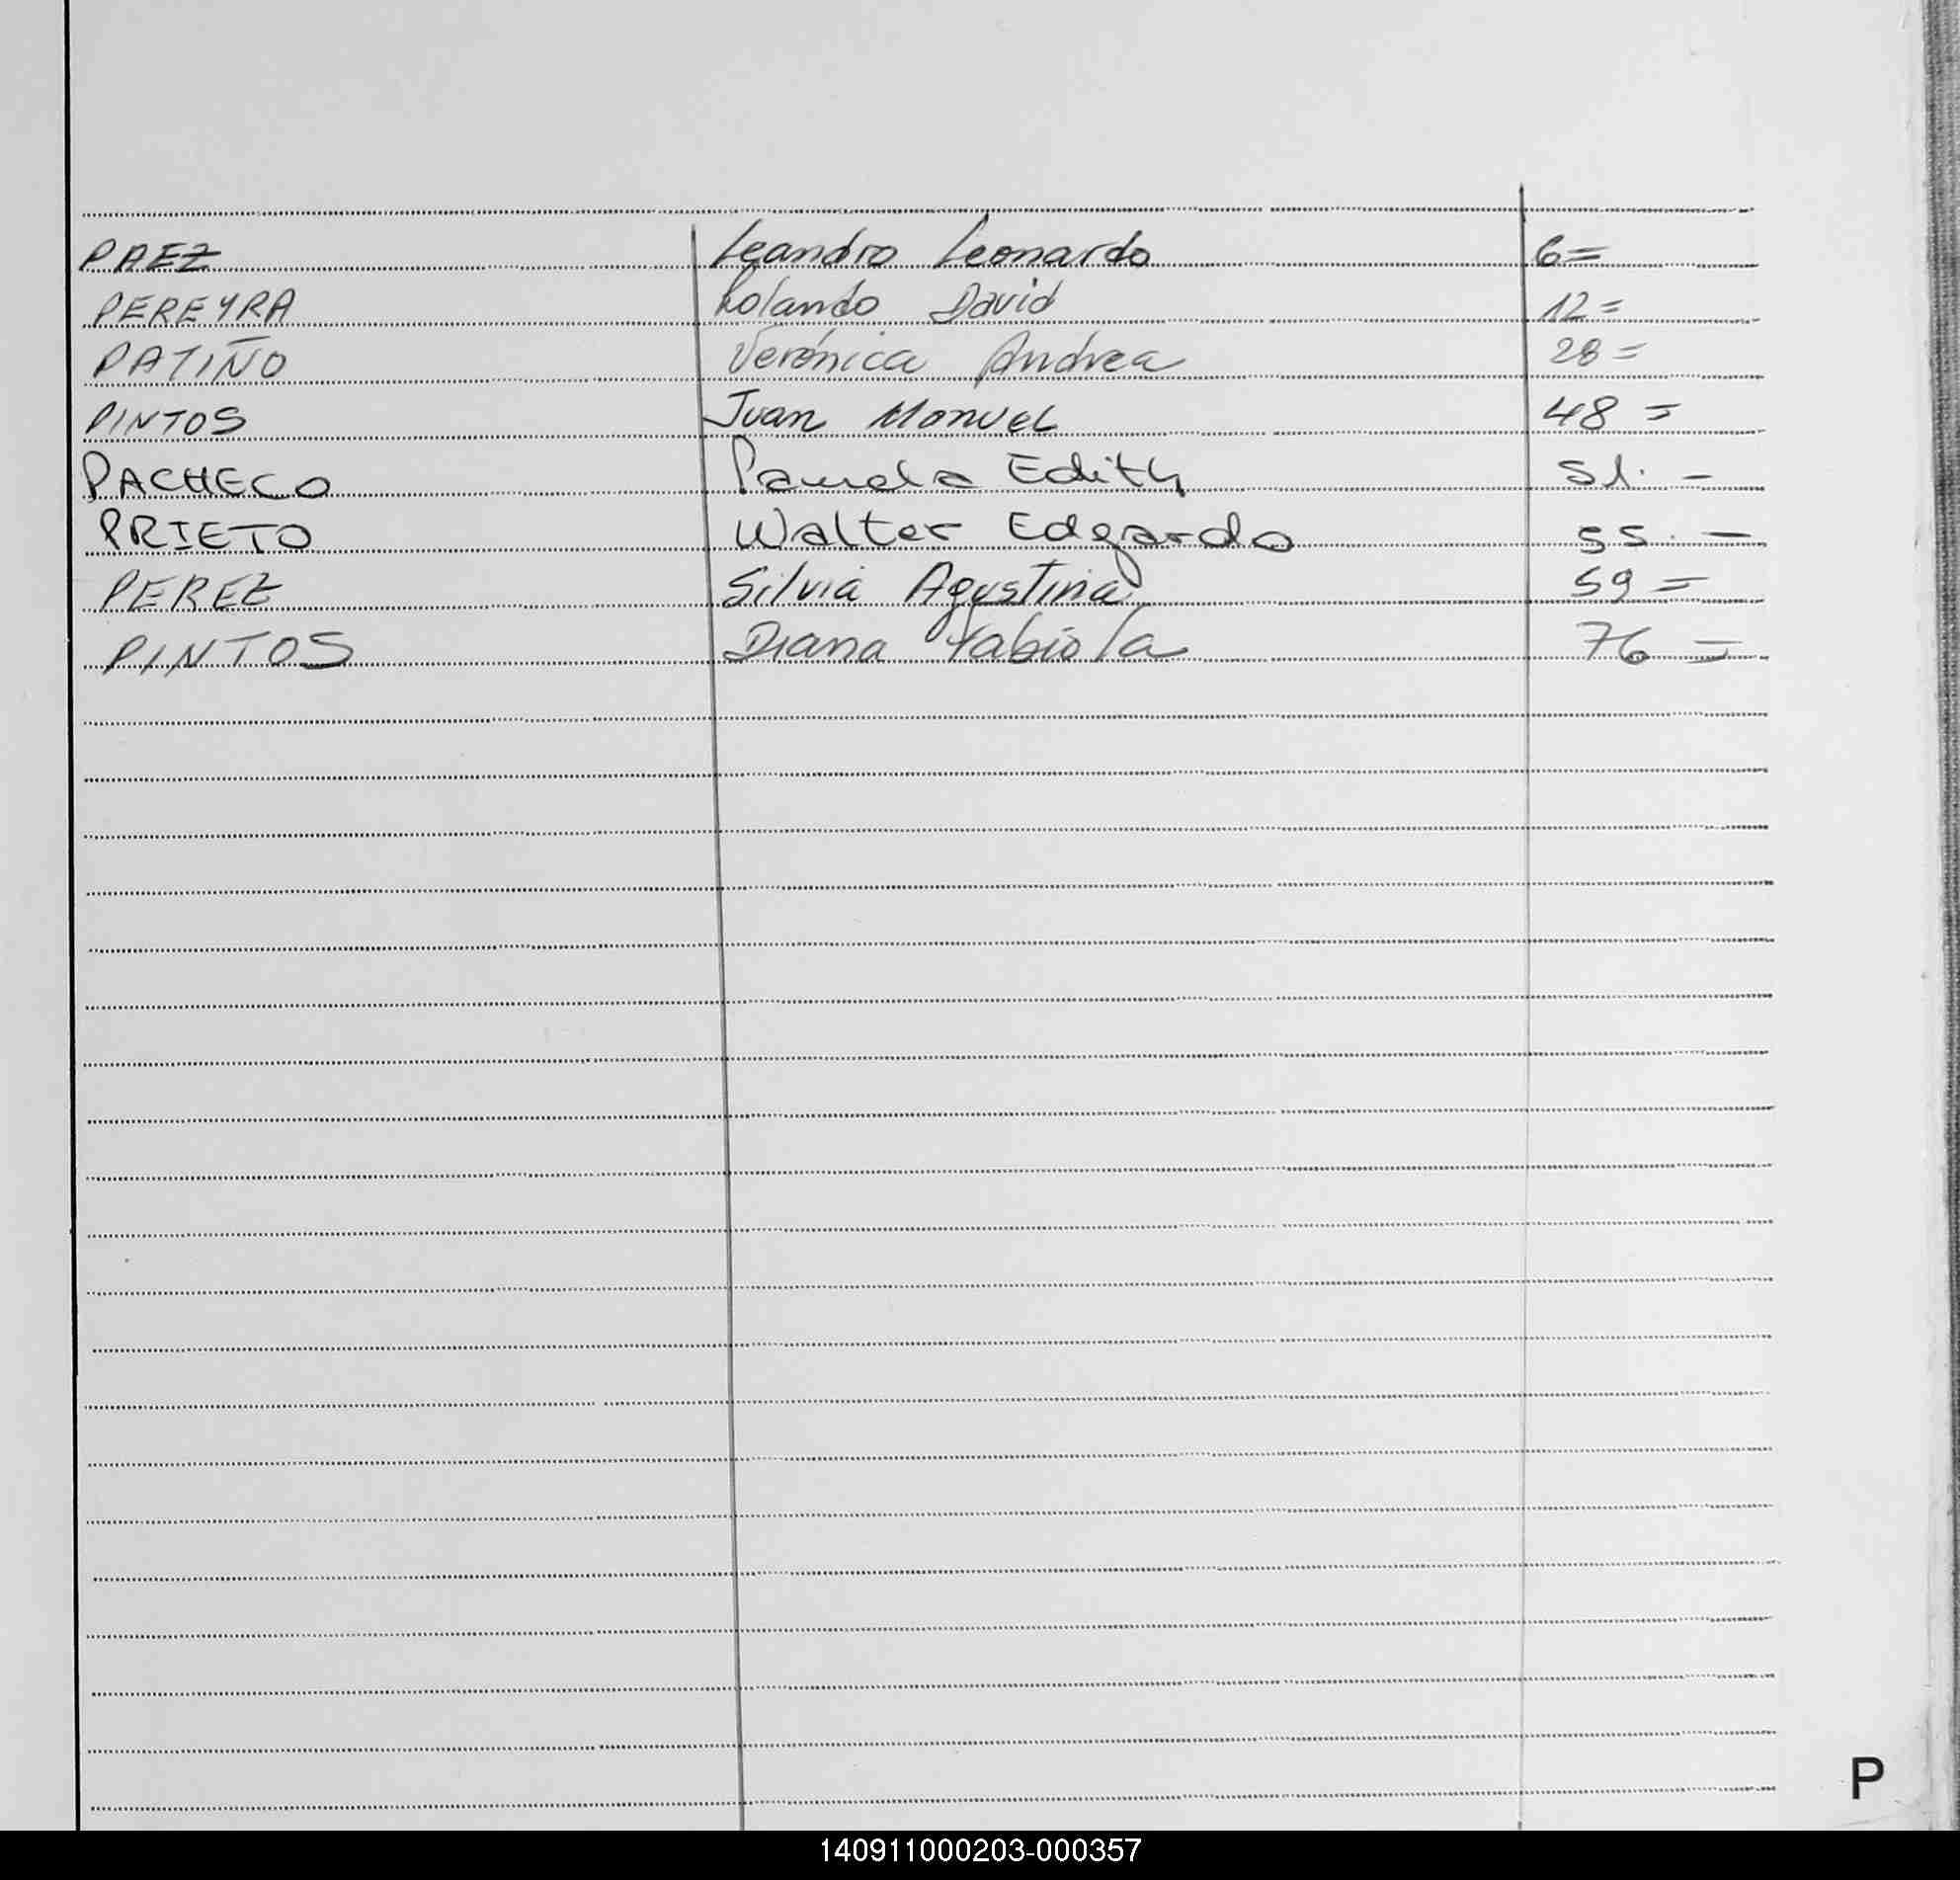 PAEZ Leandro Leonardo 6=
PEREYRA Rolando David 12=
PATIÑO Verónica Andrea 28=
PINTOS Juan Manuel 48=
PACHECO Pamela Edith 51. -
PRIETO Walter Edgardo 55. -
PEREZ Silvia Agustina 59=
PINTOS Diana Fabiola 76=
P
140911000203-000357